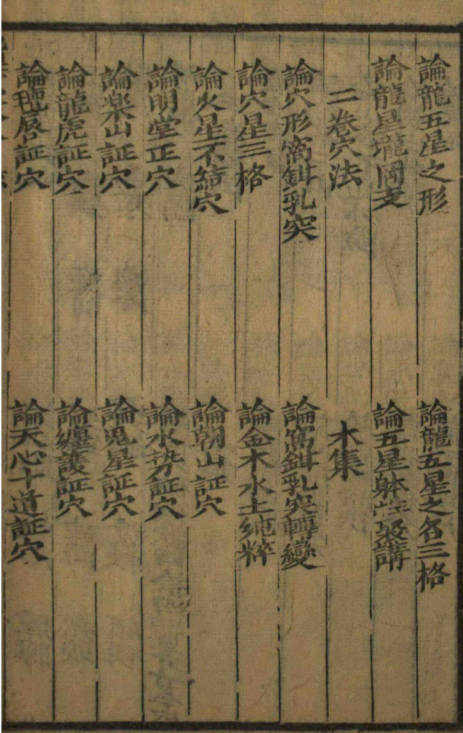 論龍五星之形　論龍五星之名三格
論龍星壠岡支　論五星躰性講
二卷穴法　木集
論穴形窩鉗乳突　論窩鉗乳突轉變
論穴星三格　論金木水土純粹
論火星不結穴　論朝山証穴
論明堂正穴　論水势証穴
論楽山証穴　論鬼星証穴
論龍虎証穴　論纏護証穴
論氊唇証穴　論天心十道証穴